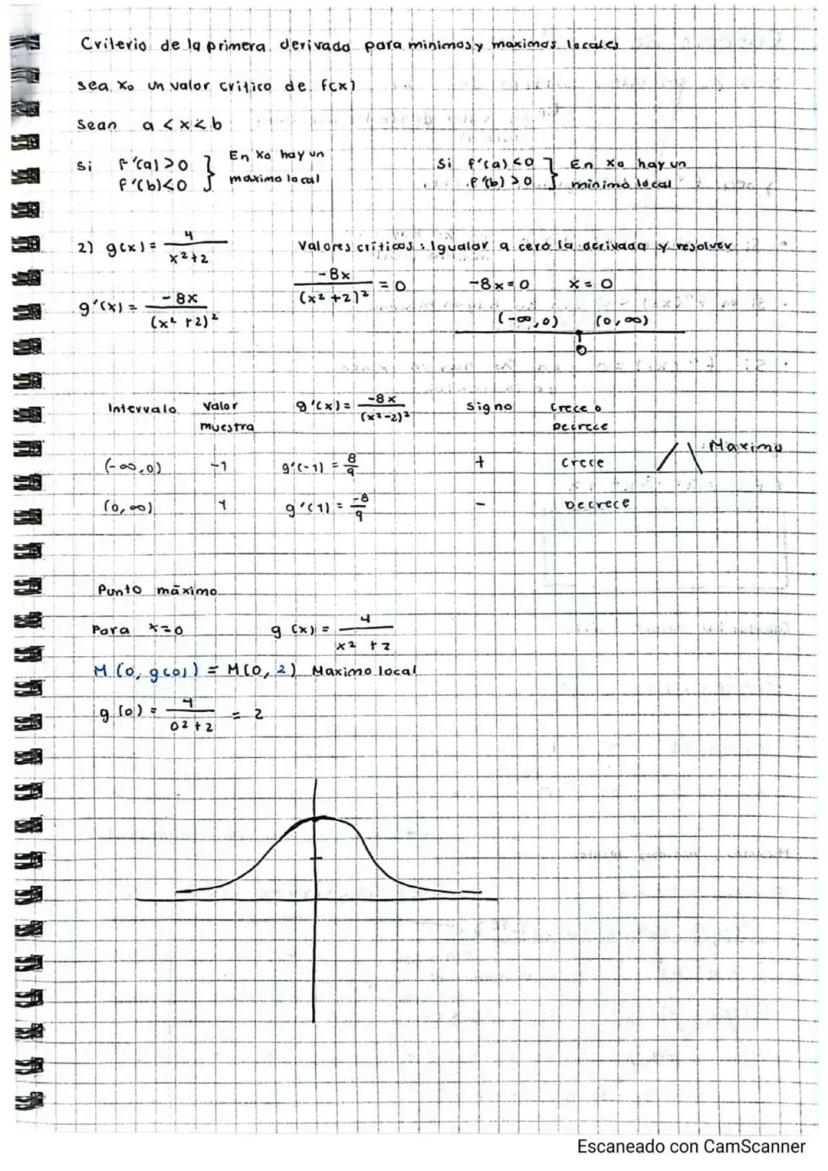 Criterio de la primera derivada para minimos y maximos locales
sea x₀ un valor critico de f(x)
Sean a < x < b
Si f'(a) > 0 } En x₀ hay un
f'(b) < 0 } maximo local
Si f'(a) < 0 } En x₀ hay un
f'(b) > 0 } minimo local
2) g(x) = 4 / x²+2
Valores criticos: Igualar a cero la derivada y resolver
g'(x) = -8x / (x²+2)²
-8x / (x²+2)² = 0 -8x = 0 x = 0
(-∞, 0) (0, ∞)
0
Intervalo Valor muestra g'(x) = -8x / (x²-2)² Signo Crece o Decrece
(-∞, 0) -1 g'(-1) = 8/9 + Crece
Maximo
(0, ∞) 1 g'(1) = -8/9 - Decrece
Punto máximo
Para x=0 g(x) = 4 / x²+2
M(0, g(0)) = M(0, 2) Maximo local
g(0) = 4 / 0²+2 = 2
Escaneado con CamScanner